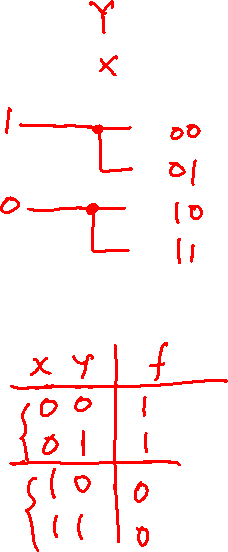 Y
X
1 00
01
0 10
11
X Y f
0 0 1
0 1 1
1 0 0
1 1 0